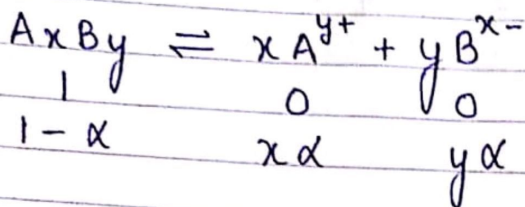 AxBy ⇌ xA^y+ + yB^x-
1 0 0
1-α xα yα